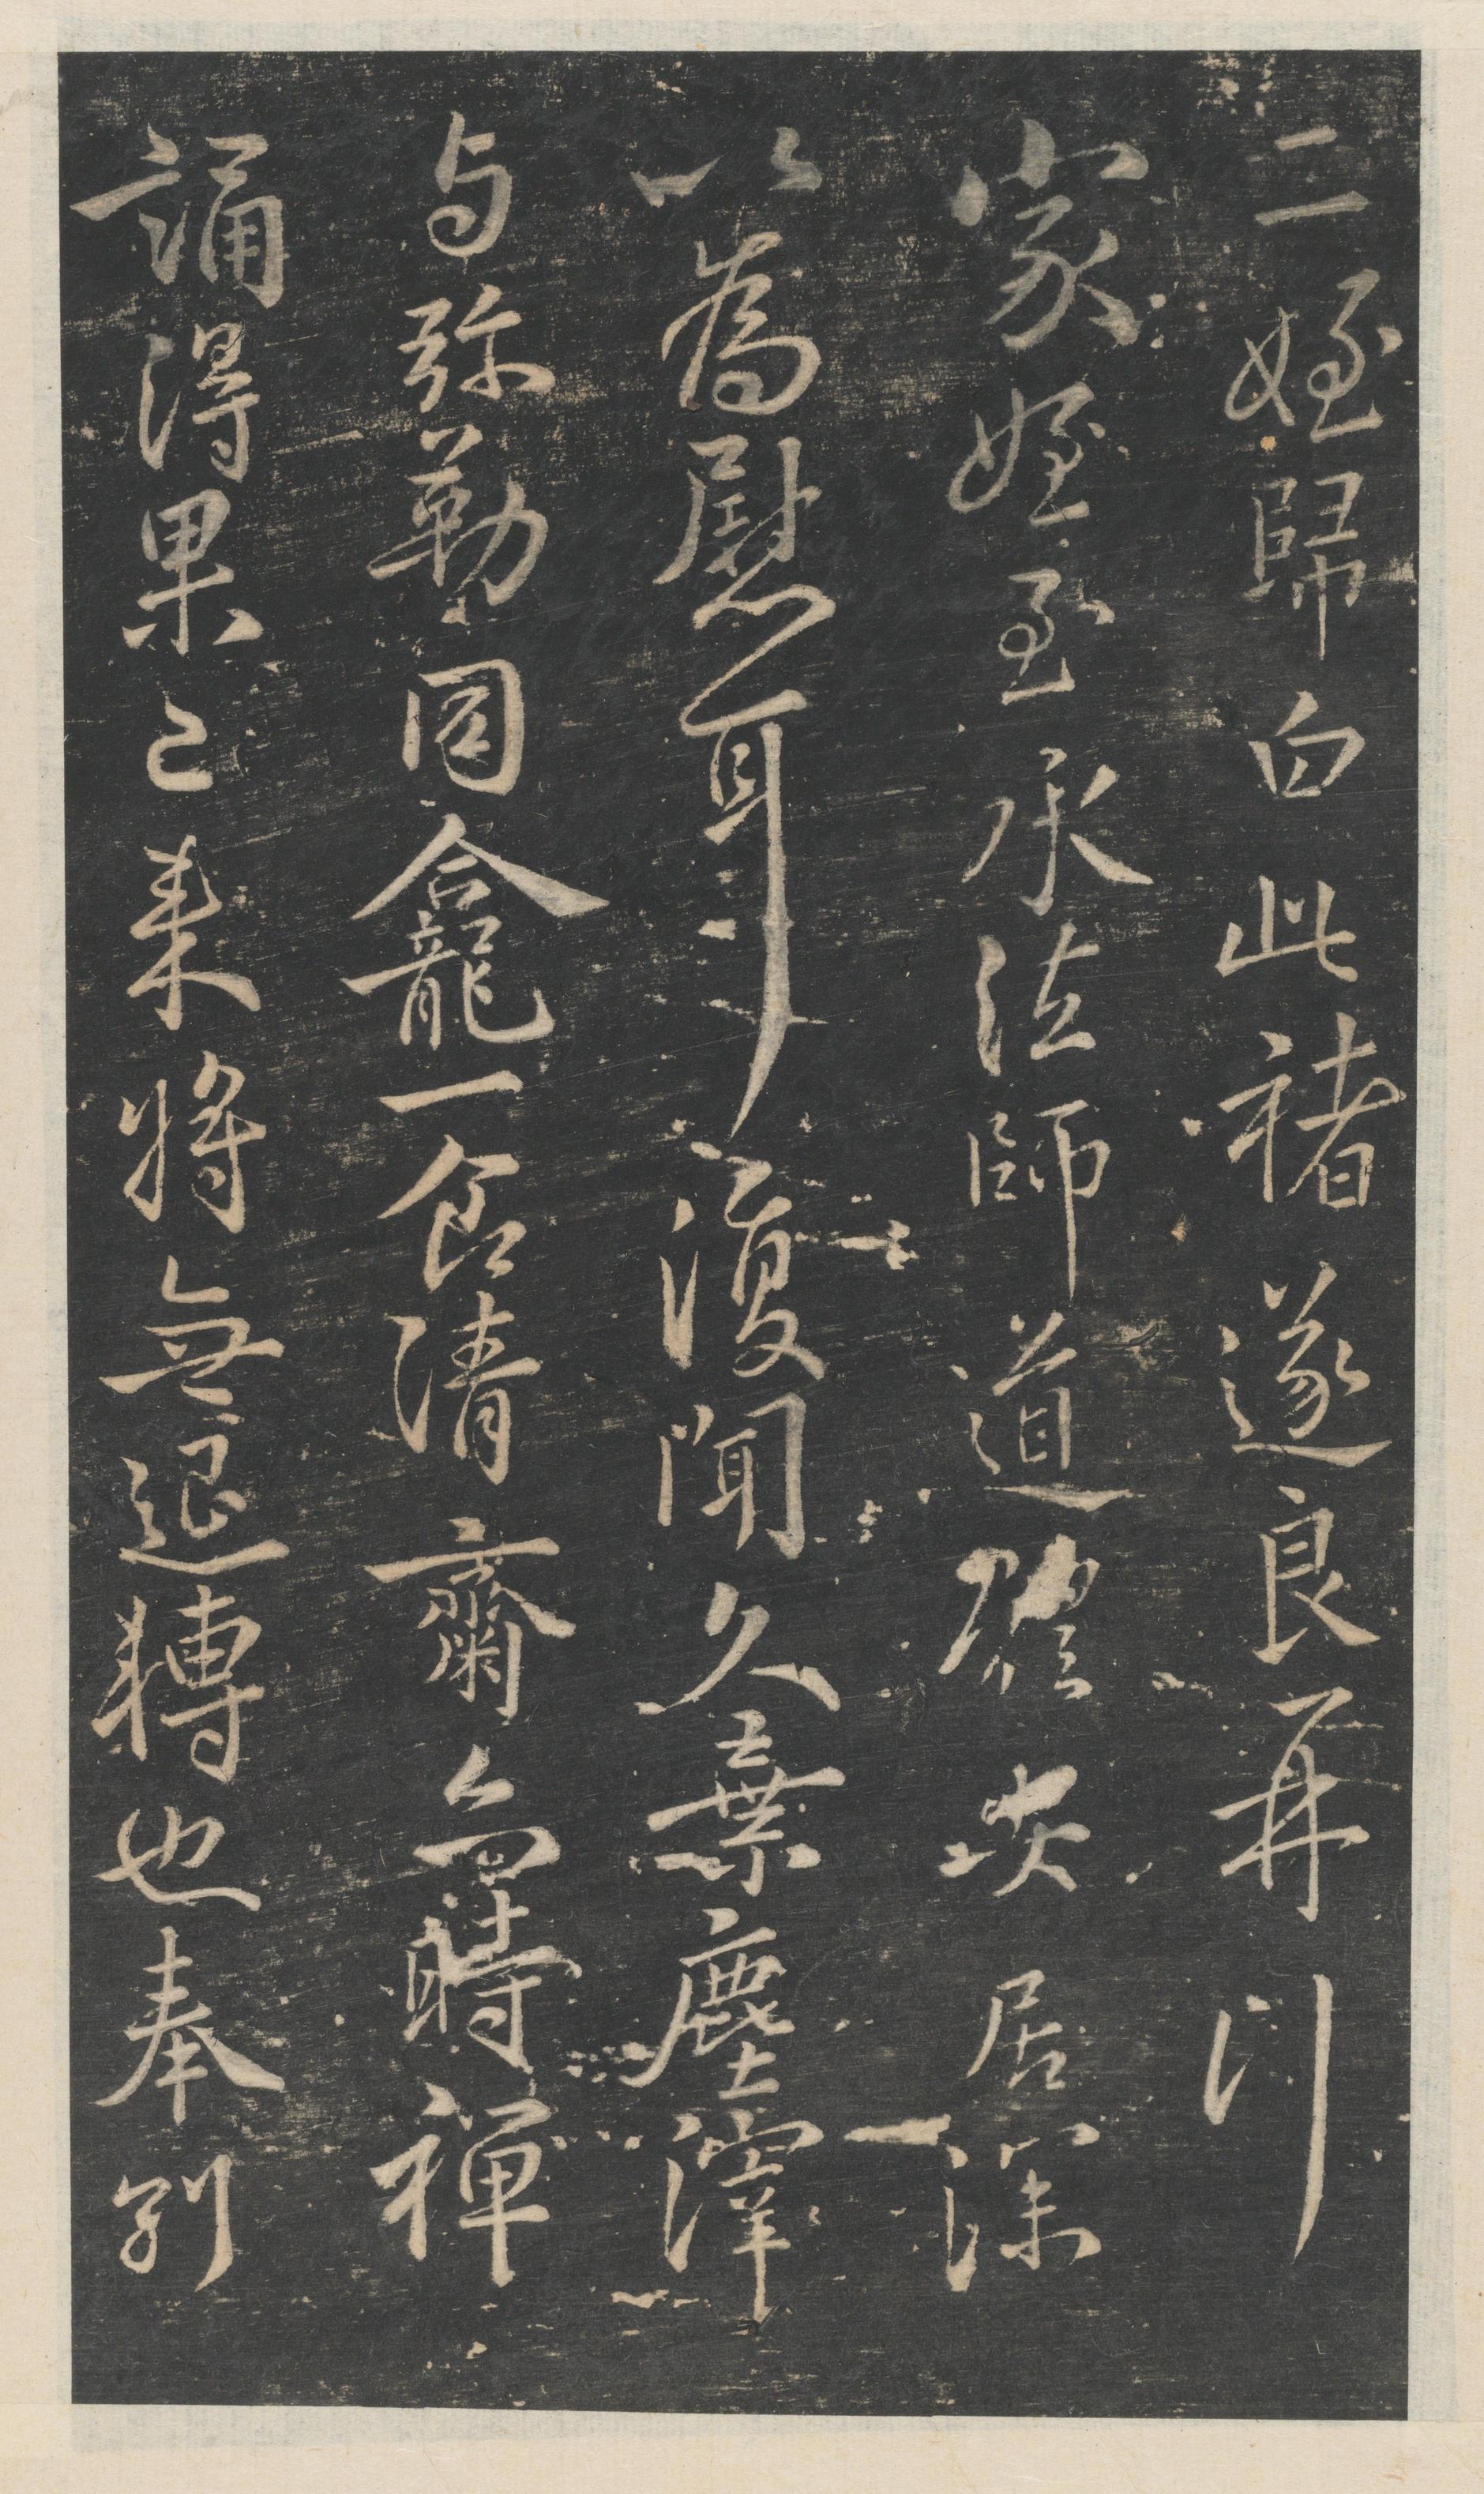 二姪歸白此褚遂良再川
家姪至承法師道體安居深
以為慰耳復聞久棄塵滓
与弥勒同龕一食清齋六時禪
誦得果已來將無退轉也奉別